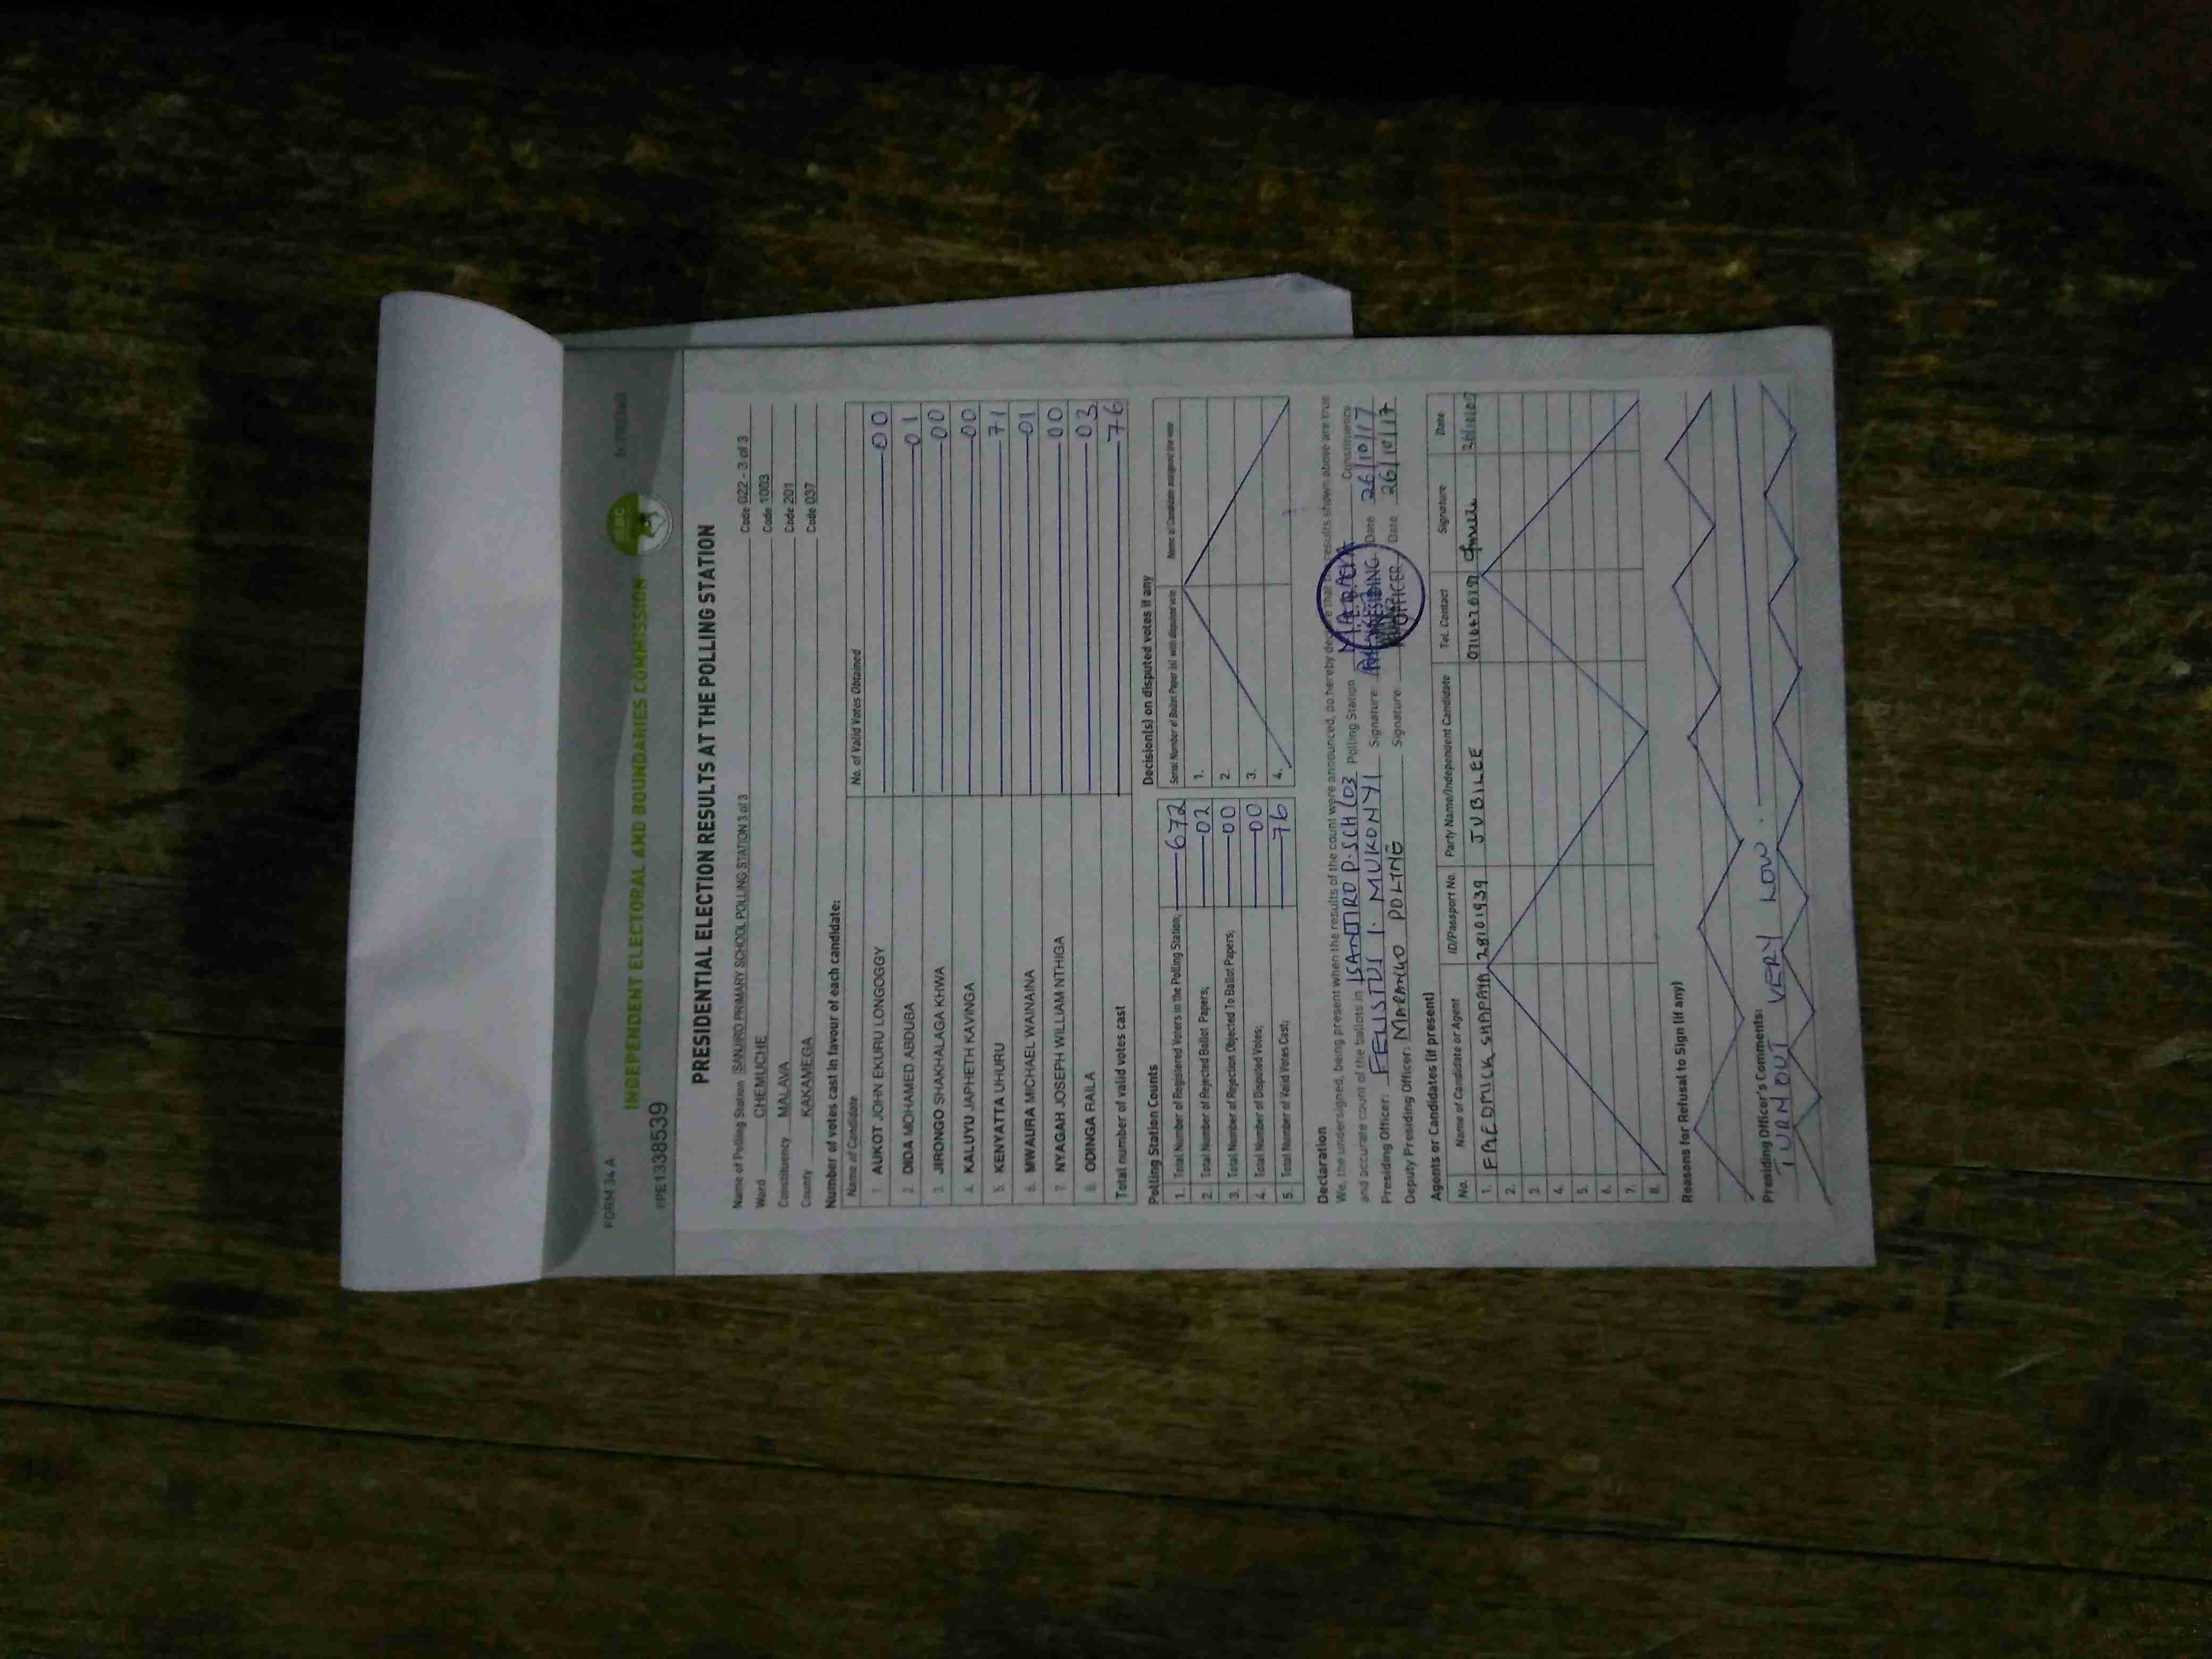 FORM 34 A
INDEPENDENT ELECTORAL AND BOUNDARIES COMMISSION
IEBC
PPE1338539
PRESIDENTIAL ELECTION RESULTS AT THE POLLING STATION
Name of Polling Station ISANJIRO PRIMARY SCHOOL POLLING STATION 3 of 3 Code 022 - 3 of 3
Ward CHEMUCHE Code 1003
Constituency MALAVA Code 201
County KAKAMEGA Code 037
Number of votes cast in favour of each candidate:
Name of Candidate No. of Valid Votes Obtained
1. AUKOT JOHN EKURU LONGOGGY 00
2. DIDA MOHAMED ABDUBA 01
3. JIRONGO SHAKHALAGA KHWA 00
4. KALUYU JAPHETH KAVINGA 00
5. KENYATTA UHURU 71
6. MWAURA MICHAEL WAINAINA 01
7. NYAGAH JOSEPH WILLIAM NTHIGA 00
8. ODINGA RAILA 03
Total number of valid votes cast 76
Polling Station Counts
1. Total Number of Registered Voters in the Polling Station; 672
2. Total Number of Rejected Ballot Papers; 02
3. Total Number of Rejection Objected To Ballot Papers; 00
4. Total Number of Disputed Votes; 00
5. Total Number of Valid Votes Cast; 76
Decision(s) on disputed votes if any
Serial Number of Ballot Paper (s) with disputed vote Name of Candidate assigned the vote
1.
2.
3.
4.
Declaration
We, the undersigned, being present when the results of the count were announced, do hereby declare that the results shown above are true
and accurate count of the ballots in ISANJIRO P. SCH (03 Polling Station Constituency
Presiding Officer: FELISTUS I. MUKONYI Signature: Date 26/10/17
Deputy Presiding Officer: MARANGO Signature: Date 26/10/17
PRESIDING
OFFICER
Agents or Candidates (if present)
No. Name of Candidate or Agent ID/Passport No. Party Name/Independent Candidate Tel. Contact Signature Date
1. FREDRICK 28101939 JUBILEE
2.
3.
4.
5.
6.
7.
8.
Reasons for Refusal to Sign (if any)
Presiding Officer's Comments:
TURN OUT VERY LOW.